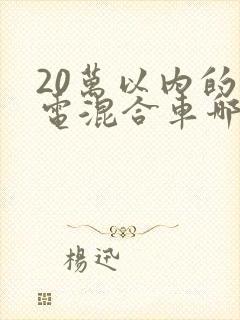 20萬以內的
電混合車哪
楊迅